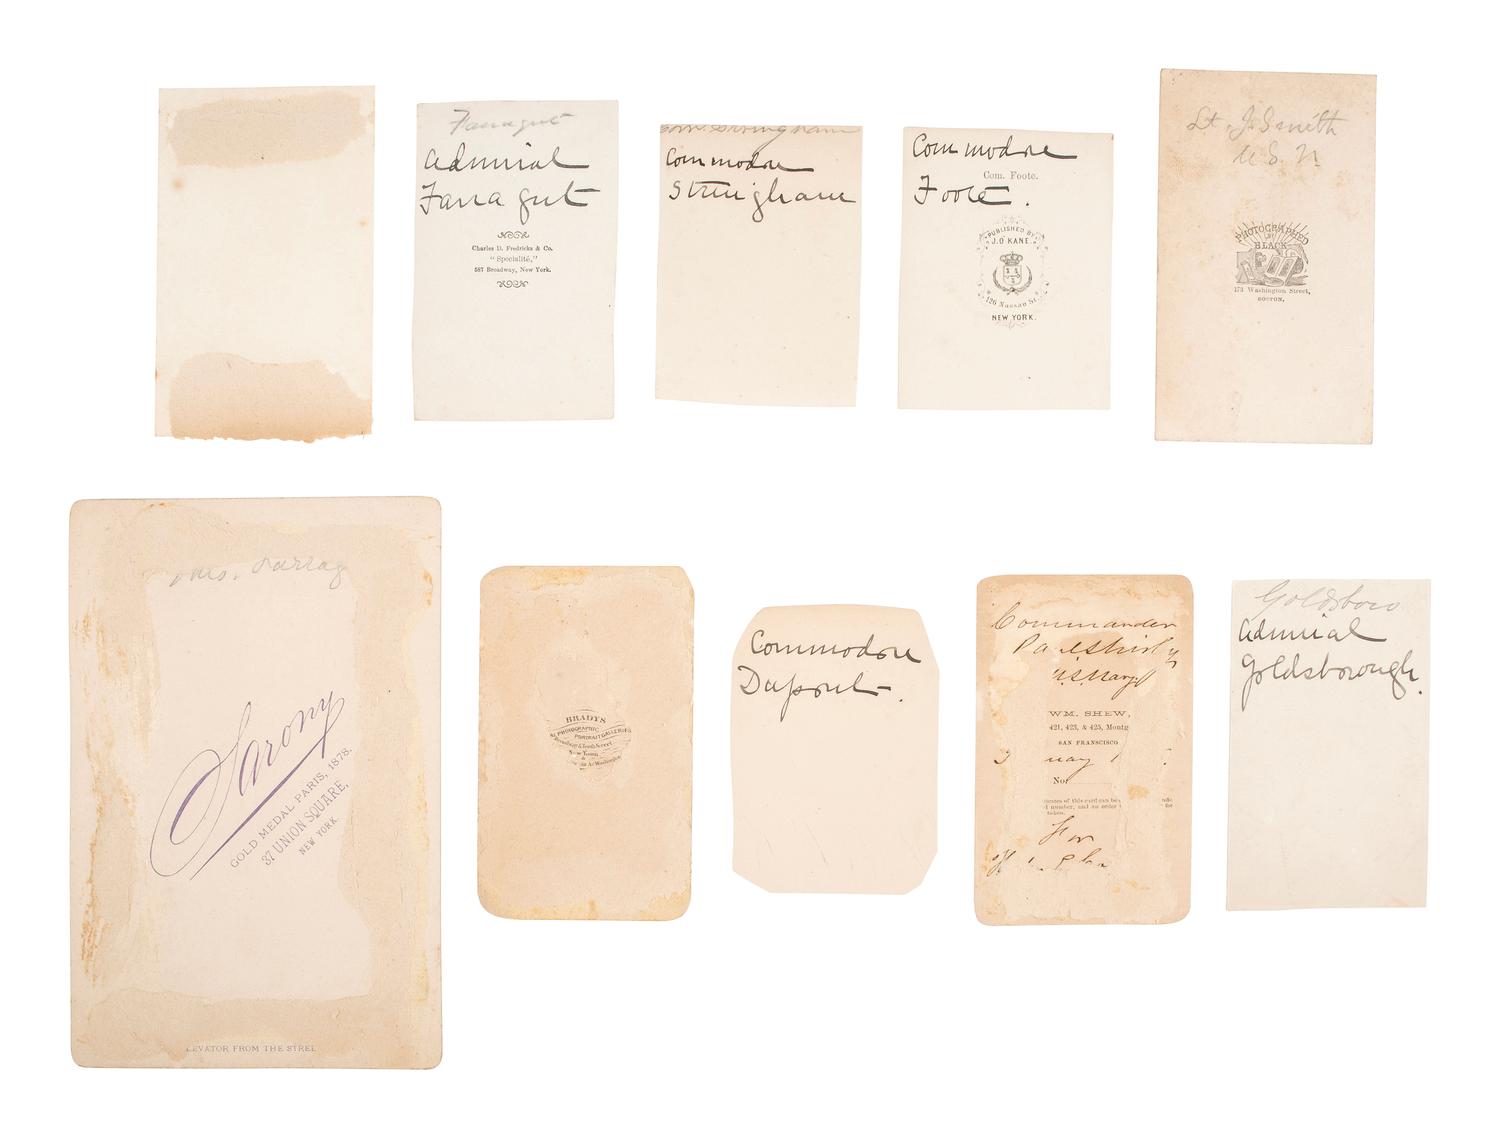 Farragut
Admiral
Farragut
Charles D. Fredricks & Co.
"Specialité,"
587 Broadway, New York.
Com. Stringham
Commodore
Stringham
Commodore
Com. Foote.
Foote.
PUBLISHED BY
J.O'KANE.
126 Nassau St.
NEW YORK.
Lt. J. Smith
U.S.N
PHOTOGRAPHED
BY
BLACK
173 Washington Street,
BOSTON,
Mrs. Farrag
Sarony
GOLD MEDAL PARIS, 1878.
37 UNION SQUARE,
NEW YORK.
LEVATOR FROM THE STREE
BRADYS
PHOTOGRAPHIC
PORTRAIT GALLERIES
Broadway & Tenth Street
New York
&
Washington
Commodore
Dupont.
Commander
Paul Shirley
U.S. Navy
WM. SHEW,
421, 423, & 425, Montg
SAN FRANSCISCO
No.
icates of this card can be
number, and an order for
taken.
For
Goldsboro
Admiral
Goldsborough.